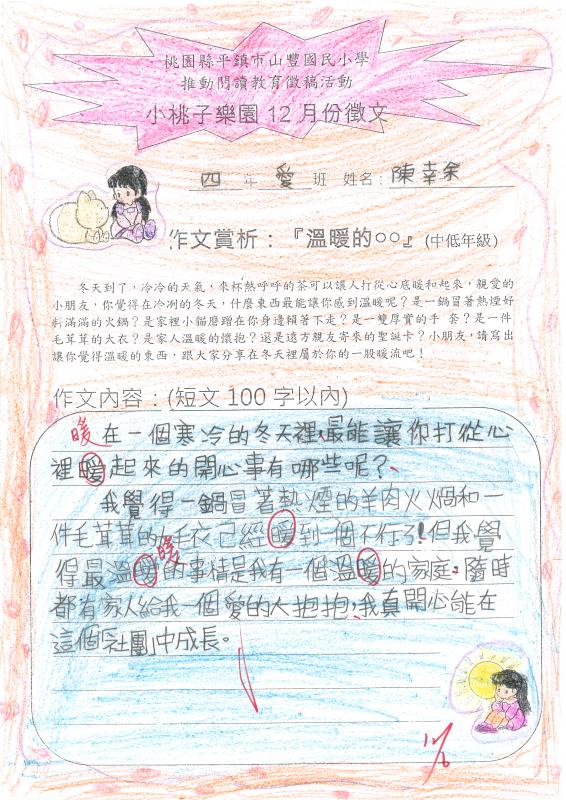 桃園縣平鎮市山豐國民小學
推動閱讀教育徵稿活動
小桃子樂園 12 月份徵文
四 年 愛 班 姓名：陳幸余
作文賞析：『溫暖的○○』(中低年級)
冬天到了，冷冷的天氣，來杯熱呼呼的茶可以讓人打從心底暖和起來，親愛的
小朋友，你覺得在冷冽的冬天，什麼東西最能讓你感到溫暖呢？是一鍋冒著熱煙好
料滿滿的火鍋？是家裡小貓磨蹭在你身邊賴著下走？是一雙厚實的手 套？是一件
毛茸茸的大衣？是家人溫暖的懷抱？還是遠方親友寄來的聖誕卡？小朋友，請寫出
讓你覺得溫暖的東西，跟大家分享在冬天裡屬於你的一股暖流吧！
作文內容：(短文 100 字以內)
暖 在一個寒冷的冬天裡，最能讓你打從心
裡暖起來的開心事有哪些呢？
我覺得一鍋冒著熱煙的羊肉火鍋和一
件毛茸茸的大毛衣已經暖到一個不行了！但我覺
暖
得最溫暖的事情是我有一個溫暖的家庭，隨時
都有家人給我一個愛的大抱抱，我真開心能在
這個「社團」中成長。